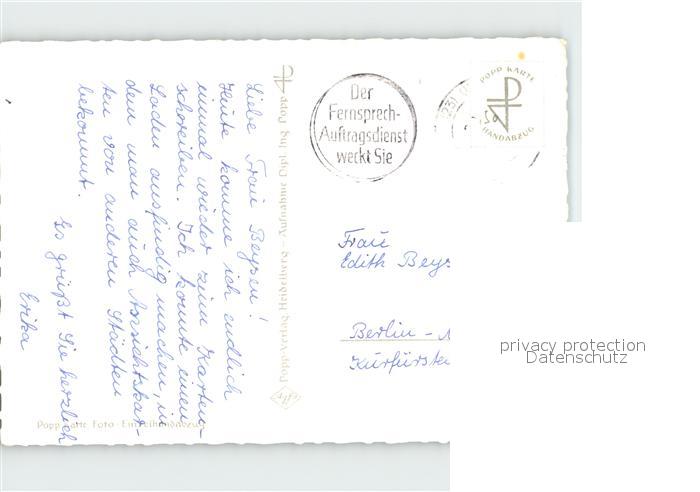 Liebe Frau Beyer!
Heute komme ich endlich
einmal wieder zum Karten-
schreiben. Ich konnte einen
Laden ausfindig machen, in
dem man auch Ansichtskar-
ten von anderen Städten
bekommt.
Es grüßt Sie herzlich
Erika
Popp-Verlag Heidelberg – Aufnahme Dipl. Ing. Popp
Popp Karte Foto · Einzelhandabzug
Der
Fernsprech-
Auftragsdienst
weckt Sie
POPP KARTE
HANDABZUG
Frau
Edith Beye
Berlin -
Kurfürste
privacy protection
Datenschutz